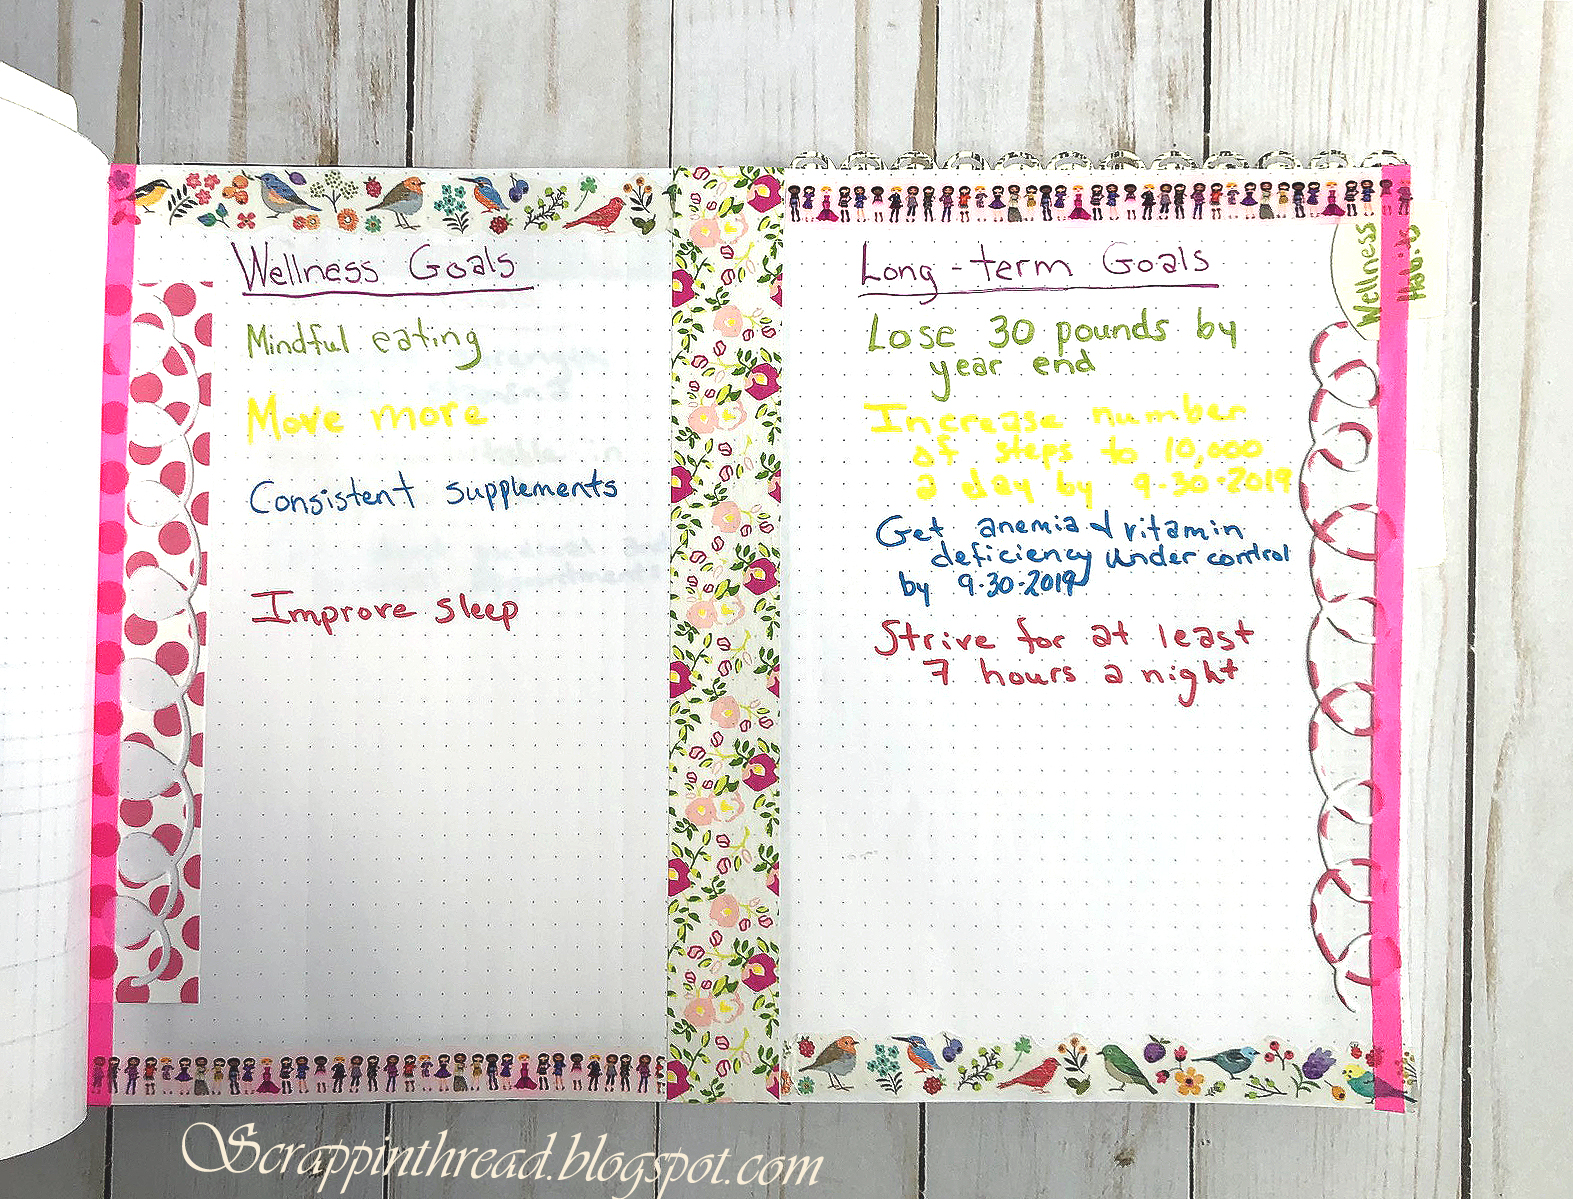 Wellness Goals
Mindful eating
Move more
Consistent supplements
Improve sleep
Long-term Goals
Lose 30 pounds by
year end
Increase number
of steps to 10,000
a day by 9.30.2019
Get anemia & vitamin
deficiency under control
by 9.30.2019
Strive for at least
7 hours a night
Wellness
Habits
Scrappinthread.blogspot.com